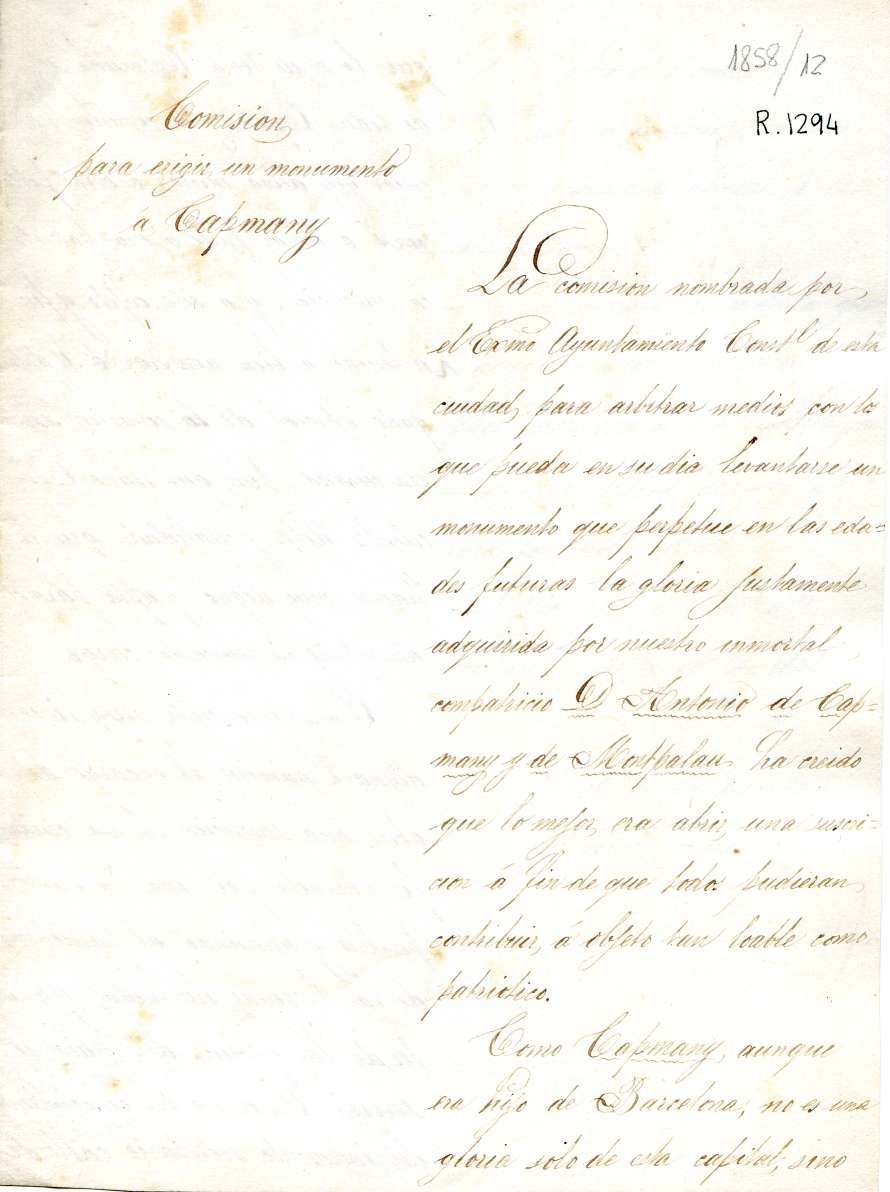 1858/12
R.1294
Comision
para erigir un monumento
á Capmany
La comision nombrada por
el Exmo Ayuntamiento Constl de esta
ciudad, para arbitrar medios con los
que pueda en su dia levantarse un
monumento que perpetue en las eda=
des futuras la gloria justamente
adquirida por nuestro inmortal
compatricio D Antonio de Cap=
many y de Montpalau ha creido
que lo mejor, era abrir, una suscri=
cion á fin de que todos pudieran
contribuir, á objeto tan loable como
patriotico.
Como Capmany, aunque
era hijo de Barcelona, no es una
gloria solo de esta capital, sino